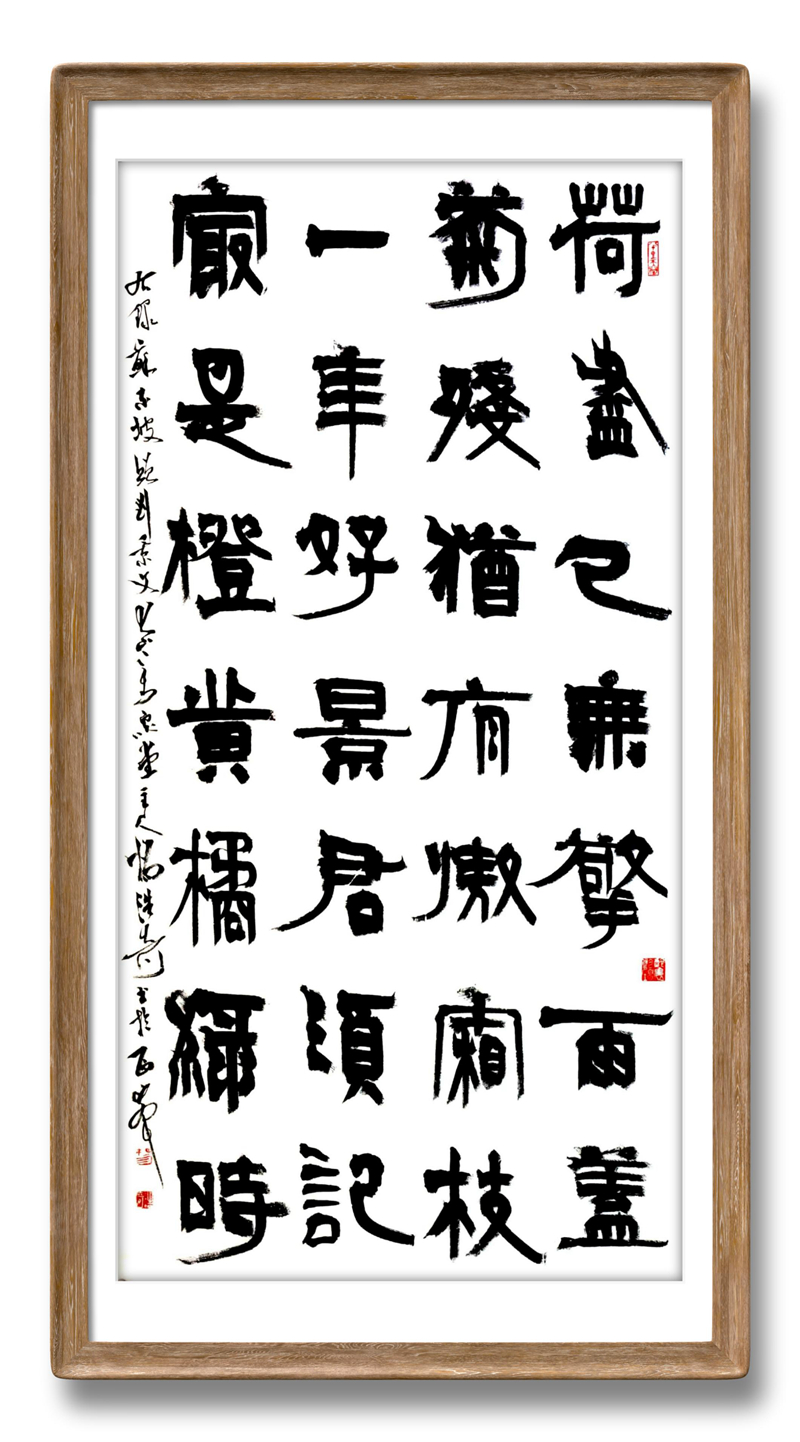 荷盡已無擎雨蓋
菊殘猶有傲霜枝
一年好景君湏記
㝡是橙黃橘綠時
右録蘇東坡贈劉景文
主人
書於